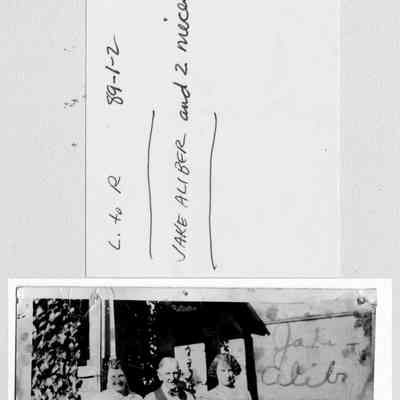 L. to R 89-1-2
JAKE ALIBER and 2 niece
Jake
Alib